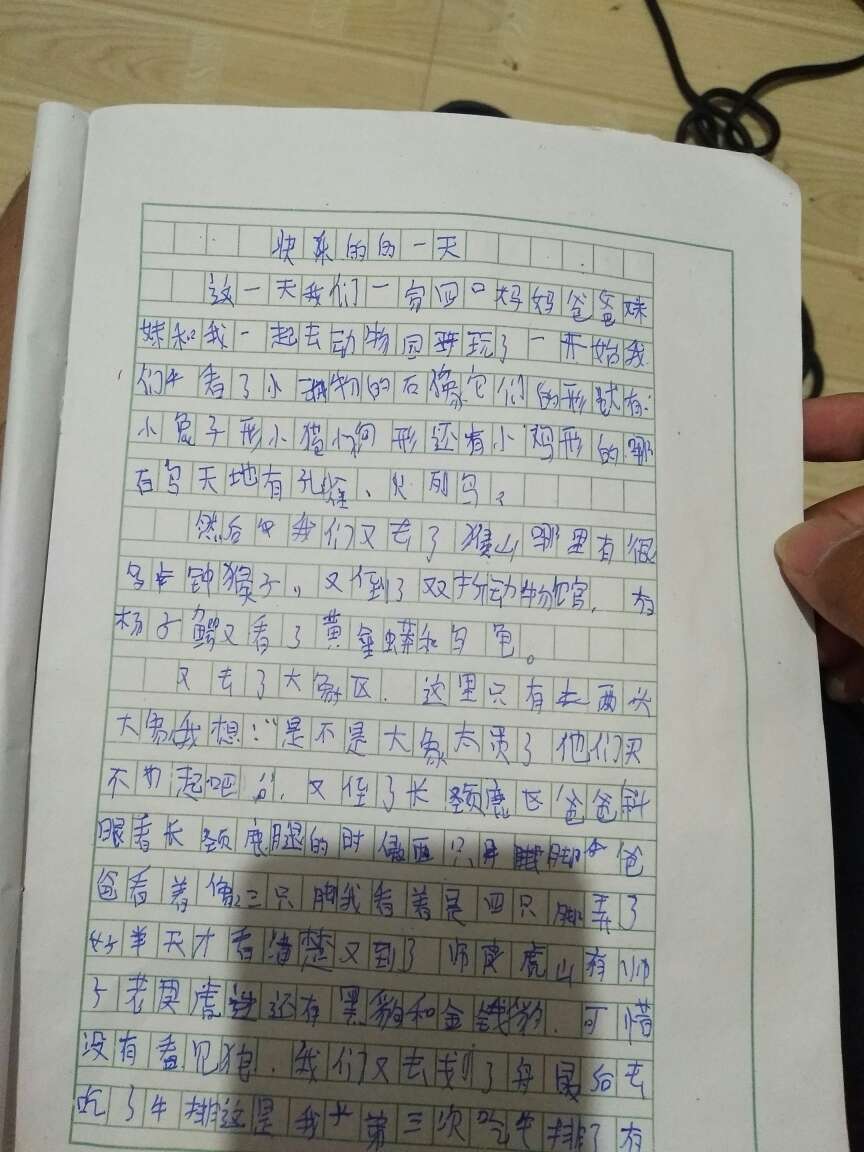 快乐的的一天
这一天我们一家四口妈妈爸爸妹
妹和我一起去动物园玩了一开始我
们看了小动物的石像它们的形状有:
小兔子形小猪小狗形还有小鸡形的那
百鸟天地有孔雀、火列鸟。
然后我们又去了猴山那里有很
多种猴子,又到了双折动物馆,有
杨子鳄又看了黄金蟒和乌龟。
又去了大象区.这里只有两头
大象我想:“是不是大象太贵了他们买
不起吧”.又到了长颈鹿区爸爸斜
眼看长颈鹿腿的时像两只脚爸
爸看着像三只脚我看着是四只脚弄了
好半天才看清楚又到了师虎山有师
子老虎还有黑豹和金钱豹.可惜
没有看见狼.我们又去了最后去
吃了牛排这是我第三次吃牛排了有